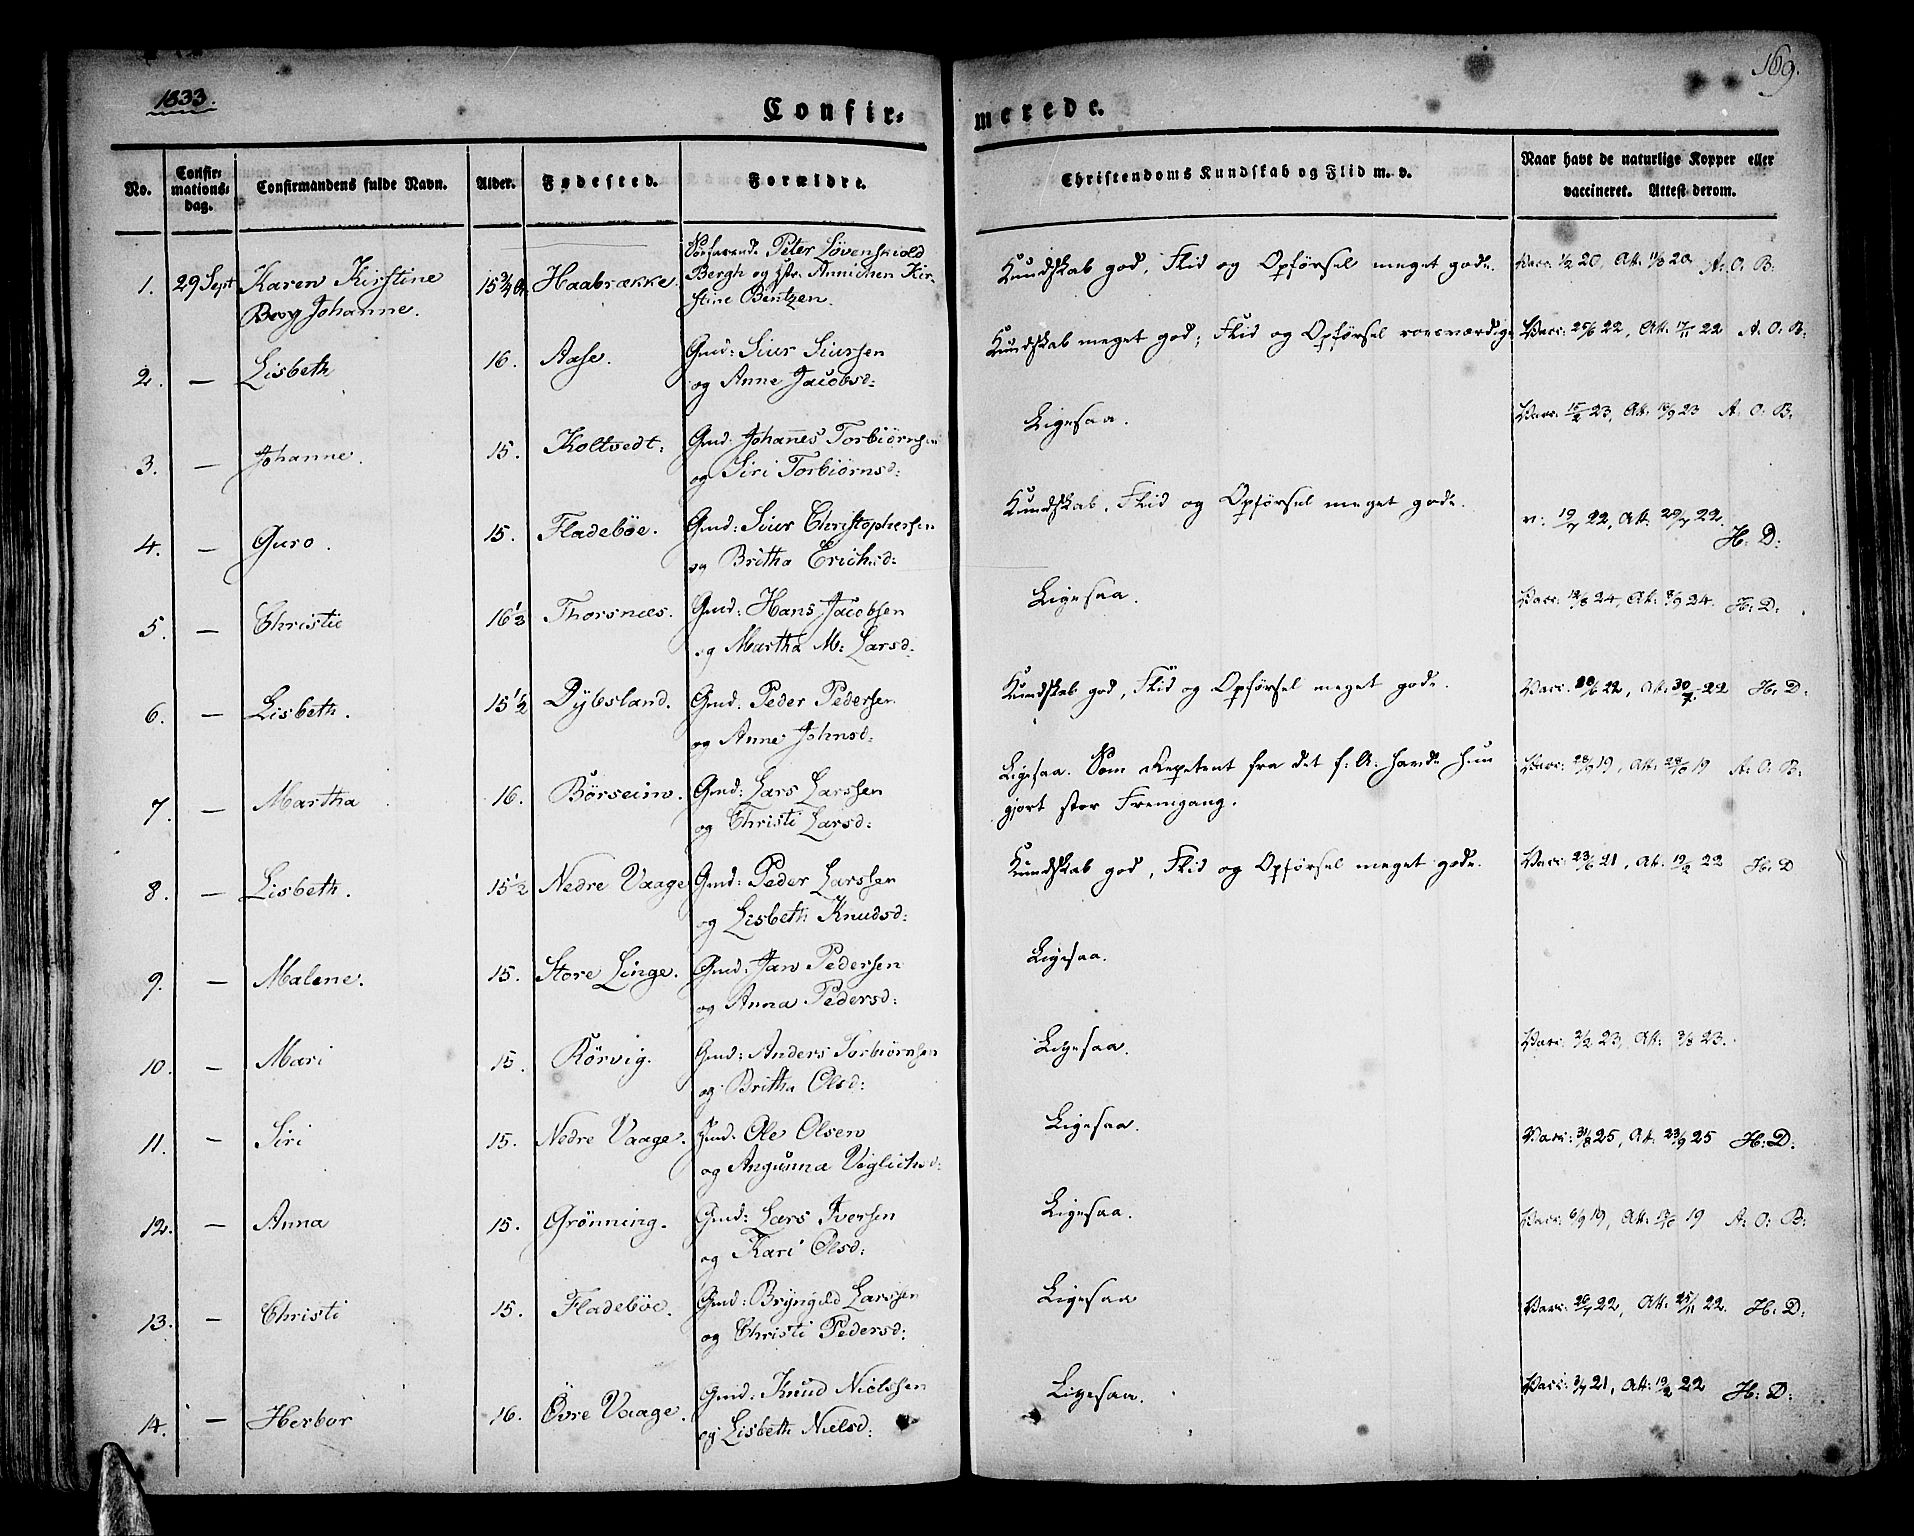 1833.
169.
Confir= merede.
No.
Confir=
mations=
dag.
Confirmandens fulde Navn.
Alder.
Fødested.
Forældre.
Christendoms Kundskab og Flid m. v.
Naar havt de naturlige Kopper eller
vaccineret. Attest derom.
1. 29 Sept Karen Kirstine
Johanne.
15 3/4 Haabrække.
Peter Løvenskiold
Bergh og Annichen Kir-
stine Bentzen.
Kundskab god, Flid og Opførsel meget gode. A. O. B.
2. — Lisbeth 16. Aase. Gmd: Siur Siursen
og Anne Jacobsd:
Kundskab meget god; Flid og Opførsel roesværdige Vacc: 25/6 22, Att: 22 A. O. B:
3. — Johanne. 15. Koltvedt. Gmd. Johanes Torbiørnsen
og Siri Torbiørnsd:
Ligesaa. Vacc: 23, Att: 23 A. O. B:
4. — Guro. 15. Fladebøe. Gmd: Siur Christophersen
og Britha Erichsd:
Kundskab, Flid og Opførsel meget gode. v: 22, Att. 22.
H: D:
5. — Christie 16 1/2 Thorsnæs. Gmd: Hans Jacobsen
og Martha M: Larsd.
Ligesaa. Vacc: 24, At: 24. H: D:
6. — Lisbeth. 15 1/2 Dybsland. Gmd. Peder Pedersen
og Anne Johnsd:
Kundskab god, Flid og Opførsel meget gode. Vacc. 22, At: 30/7 22 H: D:
7. — Martha 16. Børseim. Gmd: Lars Larssen
og Christi Larsd:
Ligesaa. Som Repetent fra det f: A: havde hun
gjort stor Fremgang.
19, At: 19 A: O: B:
8. — Lisbeth. 15 1/2 Nedre Vaage Gmd: Peder Larssen
og Lisbeth Knudsd:
Kundskab god, Flid og Opførsel meget gode. Vacc: 23/6 21, At: 19/2 22 H: D
9. — Malene. 15. Store Linge. Gmd: Jan Pedersen
og Anna Pedersd:
Ligesaa.
10. — Mari 15. Rørvig. Gmd: Anders Torbiørnsen
og Britha Olsd:
Ligesaa. Vacc: 3/2 23, At: 3/8 23.
11. — Siri 15. Nedre Vaage. Gmd. Ole Olsen
og Angunna
Ligesaa. Vacc: 31/8 25, At: 23/9 25 H: D:
12. — Anna 15. Grønning. Gmd: Lars Iversen
og Kari Olsd:
Ligesaa. Vacc: 6/9 19, At: 19 A: O: B:
13. — Christi 15. Fladebøe. Gmd: Bryngild Larssen
og Christi Pedersd:
Ligesaa Vacc: 22, At: 25/11 22. H: D:
14. — Herbor 16. Øvre Vaage. Gmd: Knud Nielssen
og Lisbeth Nielsd:
Ligesaa. Vacc: 21, At: 19/2 22 H: D: